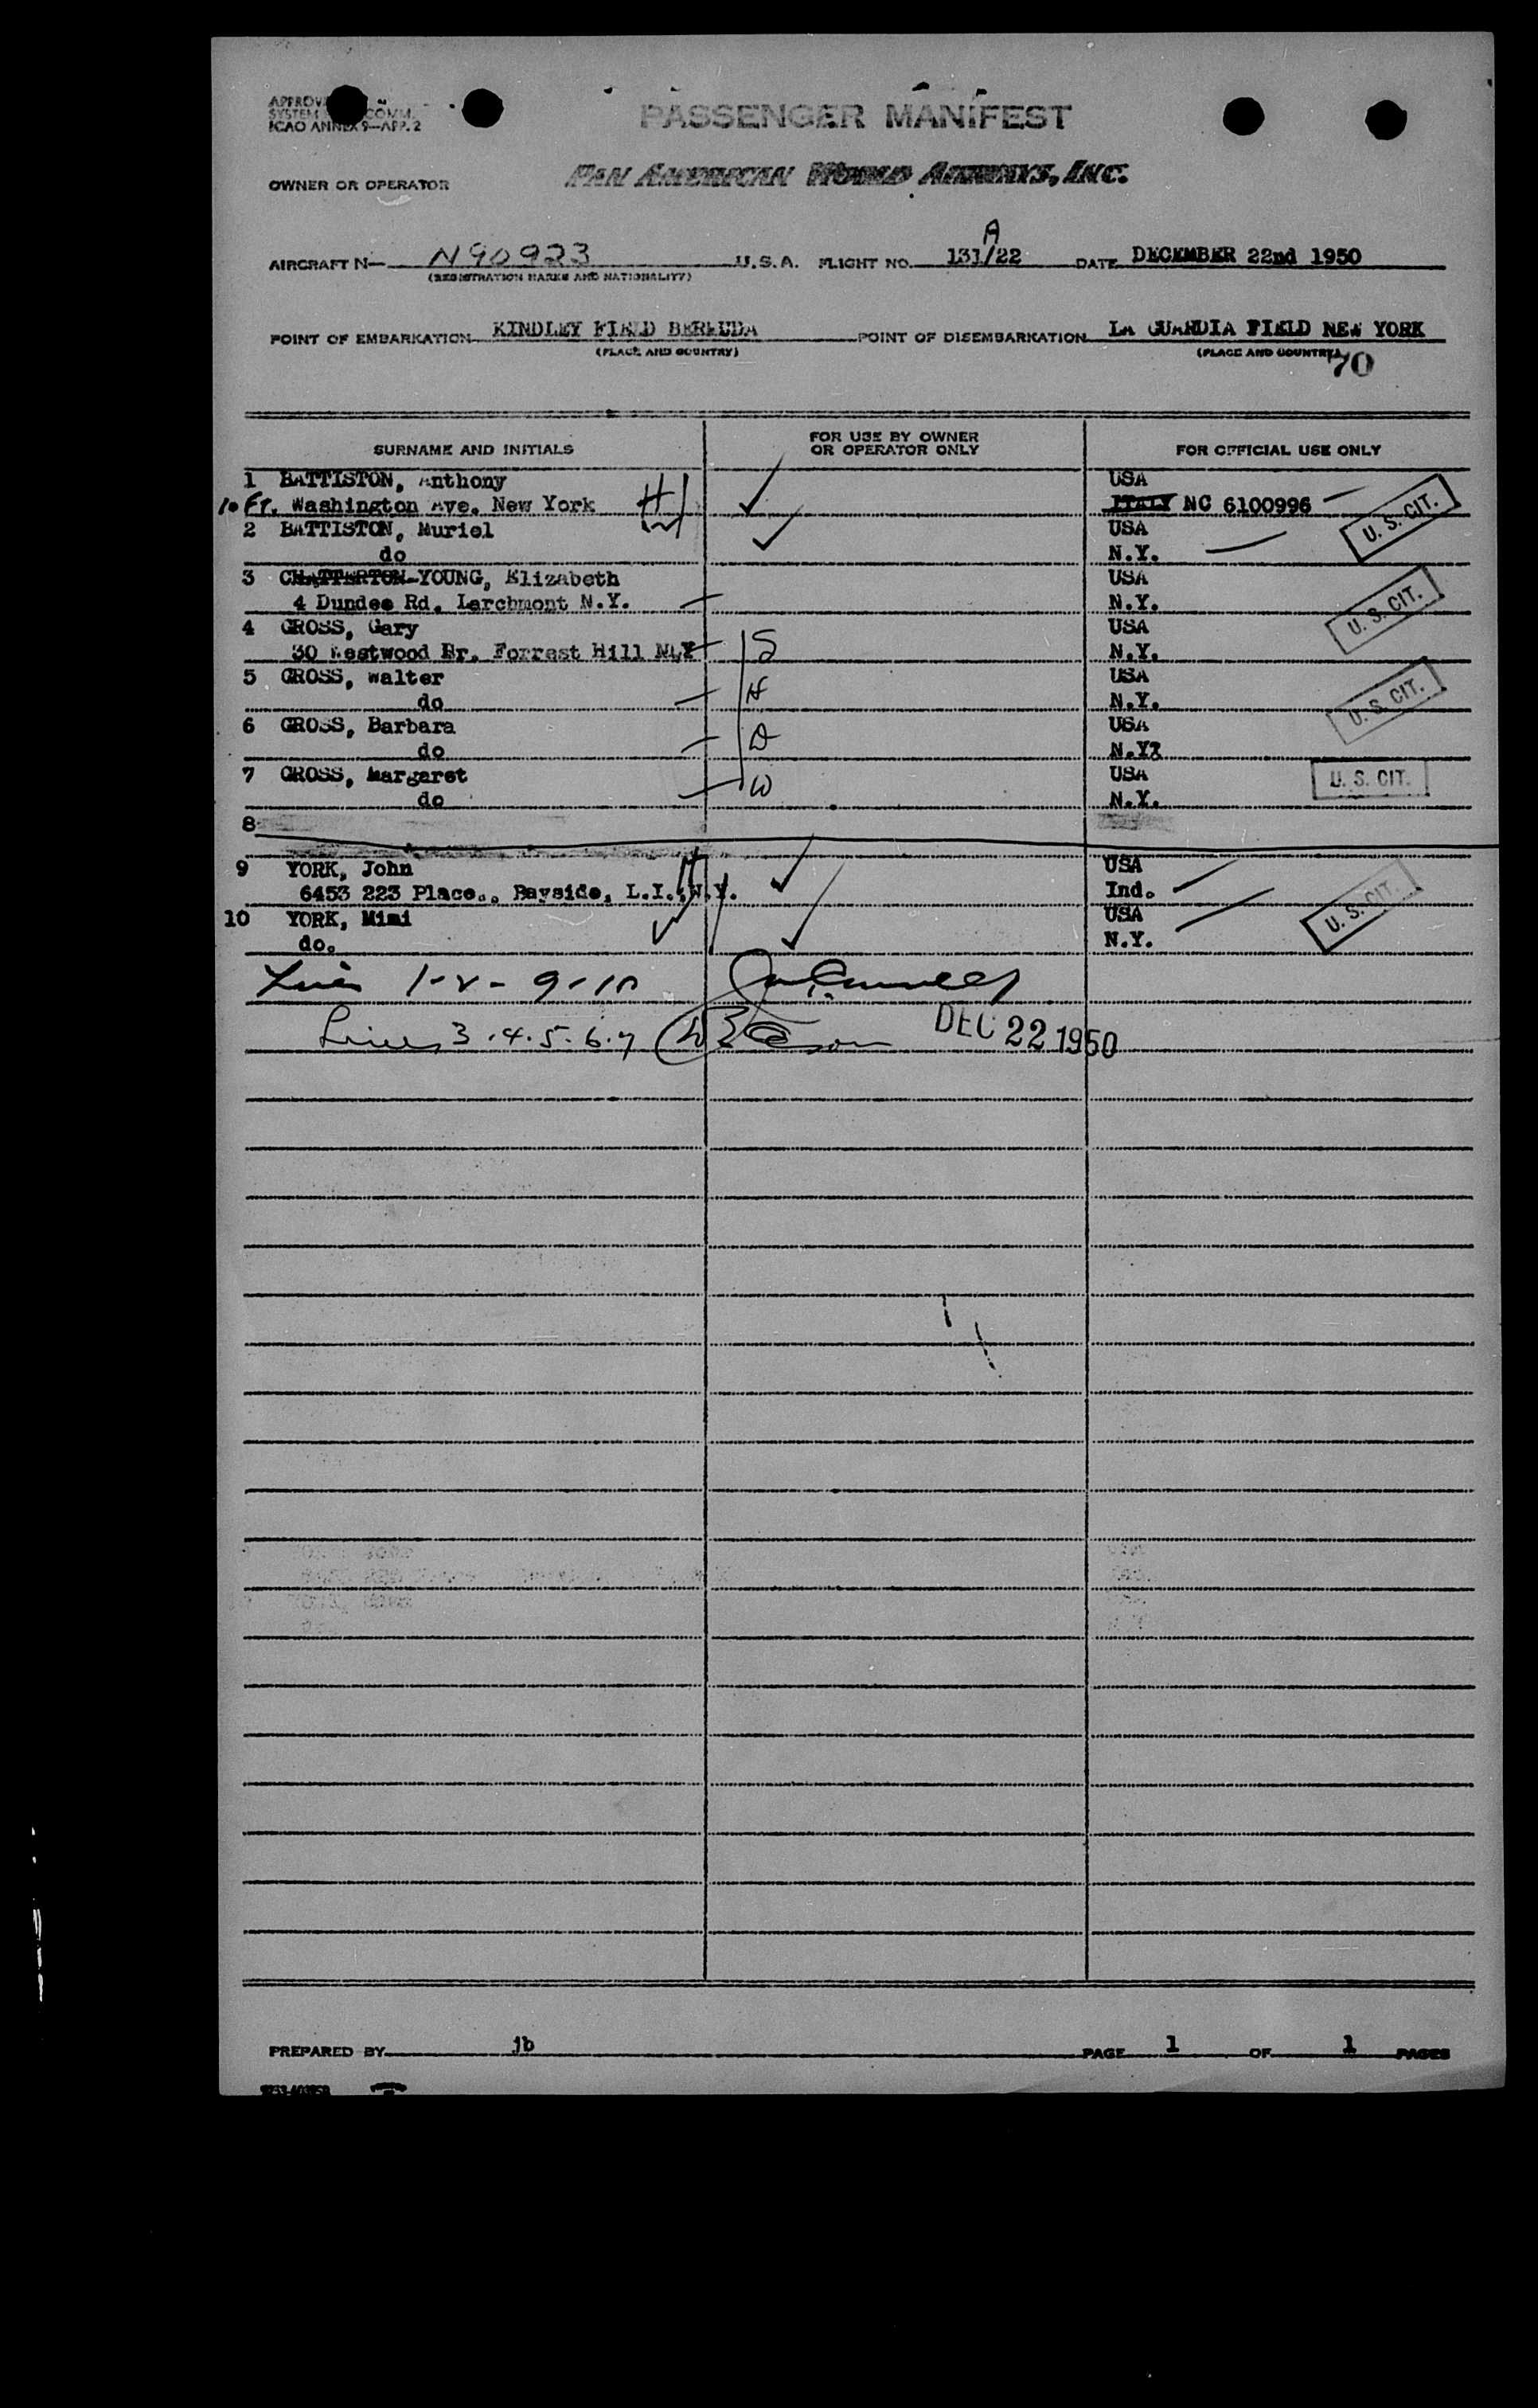 APPROV
SYSTEM COMM.
ICAO ANNEX 9—APP. 2
PASSENGER MANIFEST
OWNER OR OPERATOR PAN AMERICAN WORLD AIRWAYS, INC.
A
AIRCRAFT N— N90923 U.S.A. FLIGHT NO. 131/22 DATE DECEMBER 22nd 1950
(REGISTRATION MARKS AND NATIONALITY)
POINT OF EMBARKATION KINDLEY FIELD BERMUDA POINT OF DISEMBARKATION LA GUARDIA FIELD NEW YORK
(PLACE AND COUNTRY) (PLACE AND COUNTRY)
70
SURNAME AND INITIALS FOR USE BY OWNER OR OPERATOR ONLY FOR OFFICIAL USE ONLY
1 BATTISTON, Anthony H USA
10 Ft. Washington Ave. New York W ITALY NC 6100996 U. S. CIT.
2 BATTISTON, Muriel USA
do N.Y.
3 CHATTERTON-YOUNG, Elizabeth USA
4 Dundee Rd. Larchmont N.Y. N.Y. U. S. CIT.
4 GROSS, Gary USA
30 Westwood Hr. Forrest Hill N.Y S N.Y.
5 GROSS, Walter USA
do H N.Y. U. S. CIT.
6 GROSS, Barbara USA
do D N.Y?
7 GROSS, Margaret USA U. S. CIT.
do W N.Y.
8
9 YORK, John H USA
6453 223 Place., Bayside, L.I., N.Y. Ind.
10 YORK, Mimi W USA U. S. CIT.
do. N.Y.
Lines 1-2-9-10
Lines 3.4.5.6.7 DEC 22 1950
PREPARED BY jb PAGE 1 OF 1 PAGES